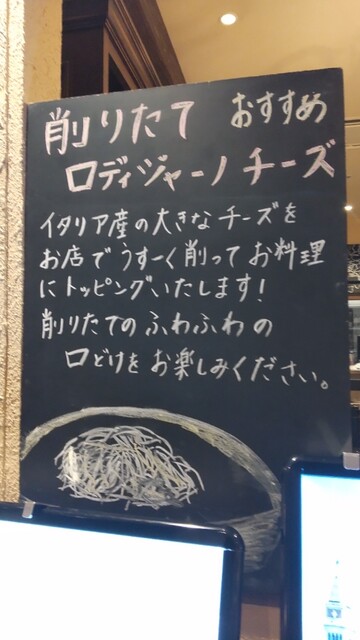 削りたて おすすめ
ロディジャーノチーズ
イタリア産の大きなチーズを
お店でうすーく削ってお料理
にトッピングいたします!
削りたてのふわふわの
口どけをお楽しみください。